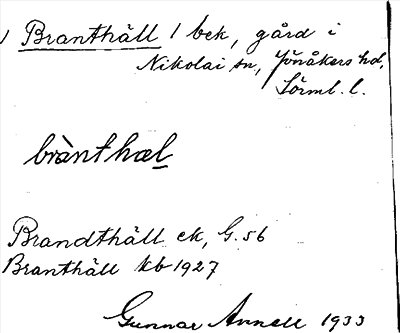 1 Branthäll 1 bek, gård i
Nikolai sn, Jönåkers hd,
Sörml. l.
brànthæl
Brandthäll ek, G. 56
Branthäll kb 1927
Gunnar Annell 1933